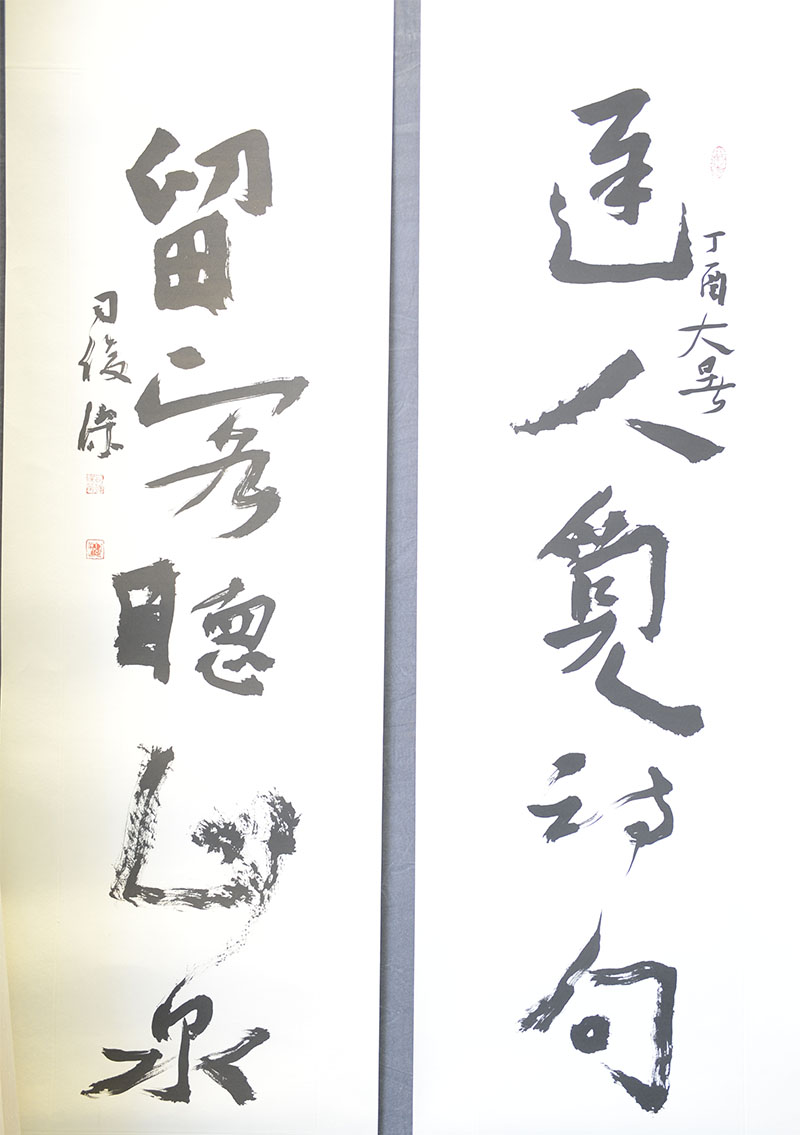 逢人覓詩句
丁酉大暑
留客聽山泉